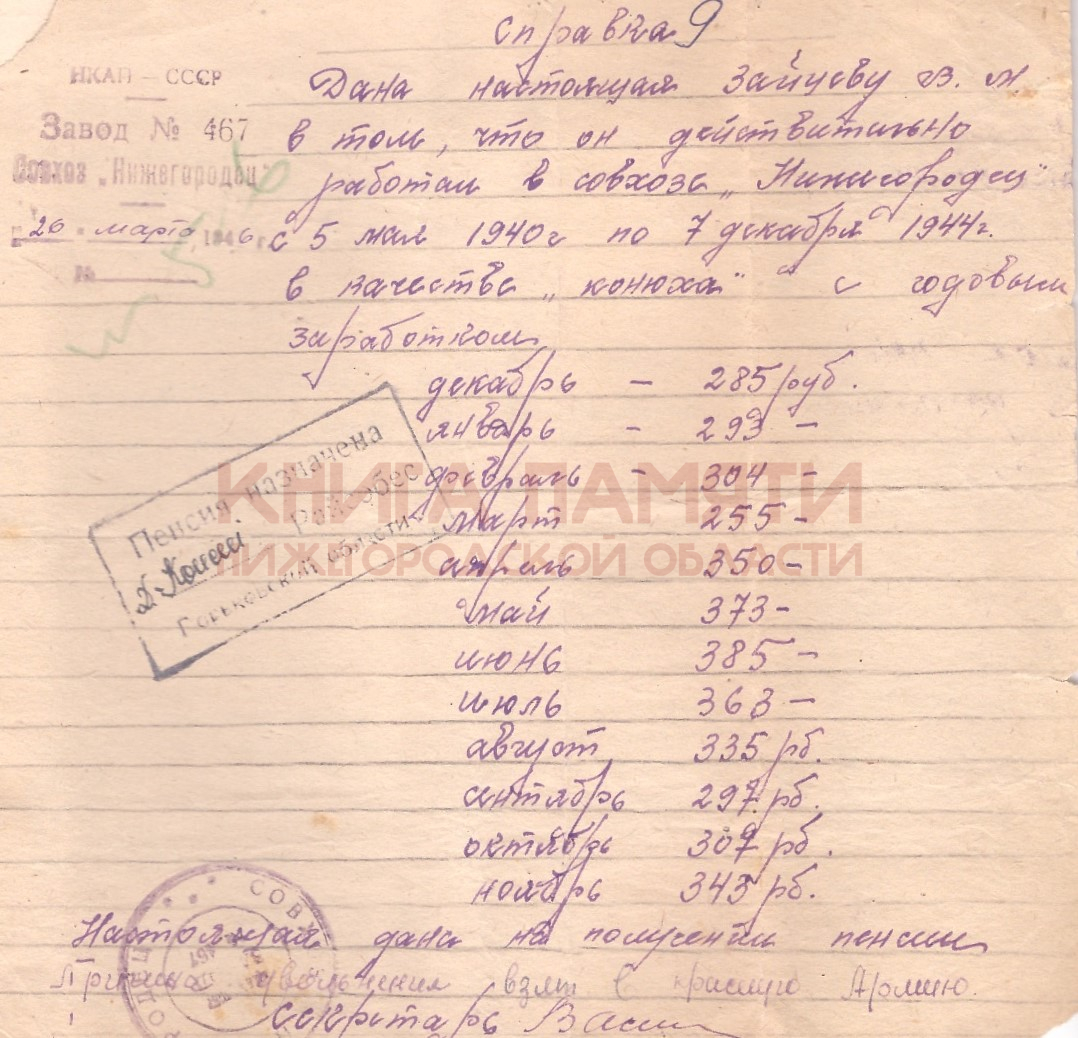 Справка 9
НКАП – СССР
Завод № 467
Совхоз „Нижегородец"
26 " марта 1946 г.
№
Дана настоящая Зайцеву В. М.
в том, что он действительно
работал в совхозе „Нижегородец"
с 5 мая 1940г по 7 декабря 1944г.
в качестве „конюха" с годовым
заработком
декабрь – 285 руб.
январь – 293 –
февраль – 304 –
март 255 –
апрель 350 –
май 373 –
июнь 385 –
июль 363 –
август 335 рб.
сентябрь 297 рб.
октябрь 307 рб.
ноябрь 343 рб.
Пенсия назначена
Райсобес
Горьковской области
КНИГА ПАМЯТИ
НИЖЕГОРОДСКОЙ ОБЛАСТИ
Настоящая дана на получении пенсии
Причина увольнения взят в красную Армию.
Секретарь
СОВХ
467